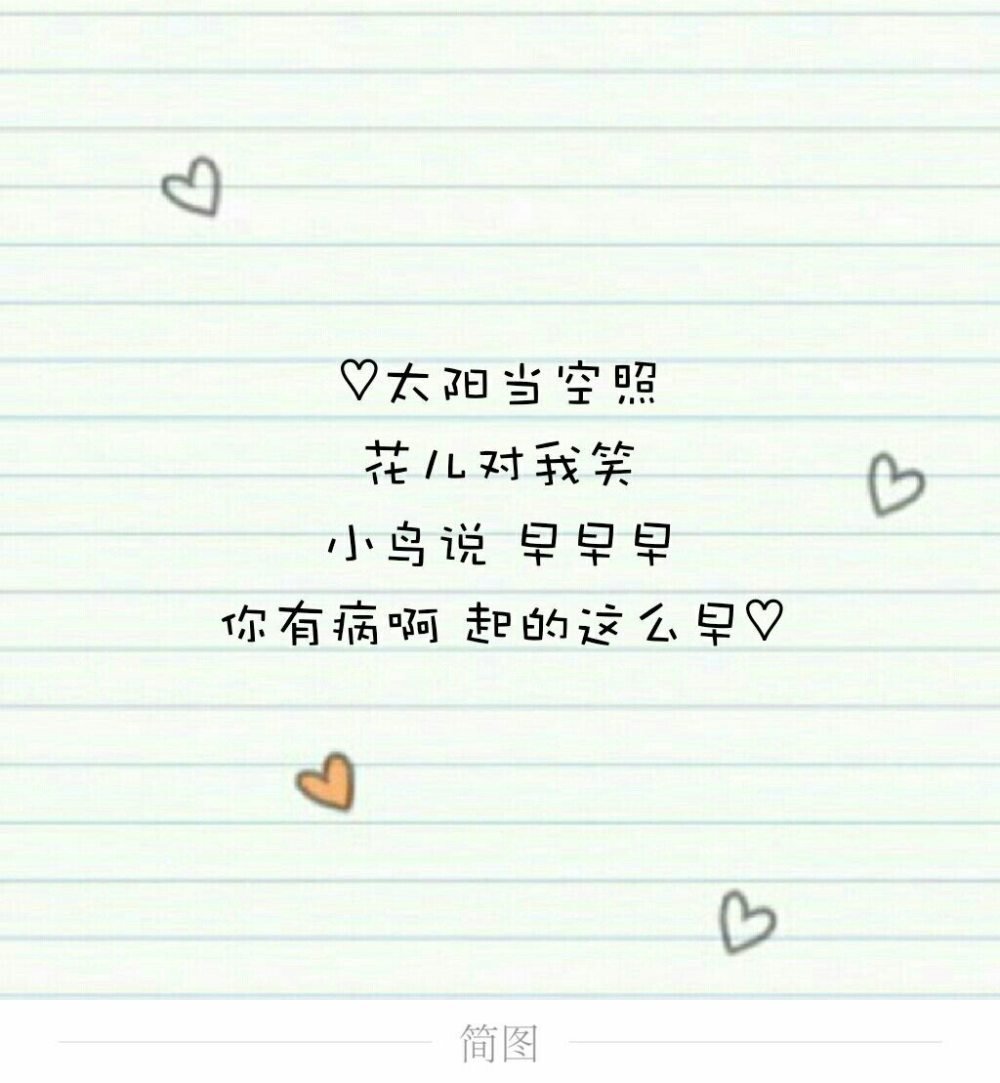 ♡太阳当空照
花儿对我笑
小鸟说 早早早
你有病啊 起的这么早♡
简图